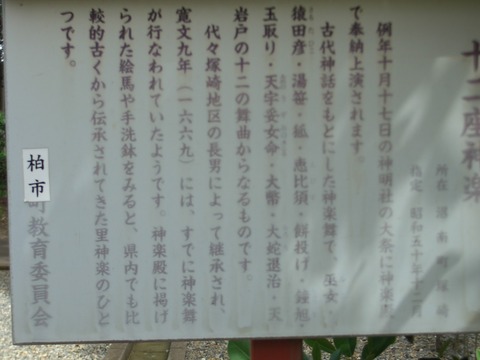 十二座神楽
所在 沼南町塚崎
指定 昭和五十年十二月
例年十月十七日の神明社の大祭に神楽殿
で奉納上演されます。
古代神話をもとにした神楽舞で、巫女・
猿田彦・湯笹・狐・恵比須・餅投げ・鍾馗・
玉取り・天宇受女命・大幣・大蛇退治・天
岩戸の十二の舞曲からなるものです。
代々塚崎地区の長男によって継承され、
寛文九年（一六六九）には、すでに神楽舞
が行なわれていたようです。神楽殿に掲げ
られた絵馬や手洗鉢をみると、県内でも比
較的古くから伝承されてきた里神楽のひと
つです。
柏市
町教育委員会